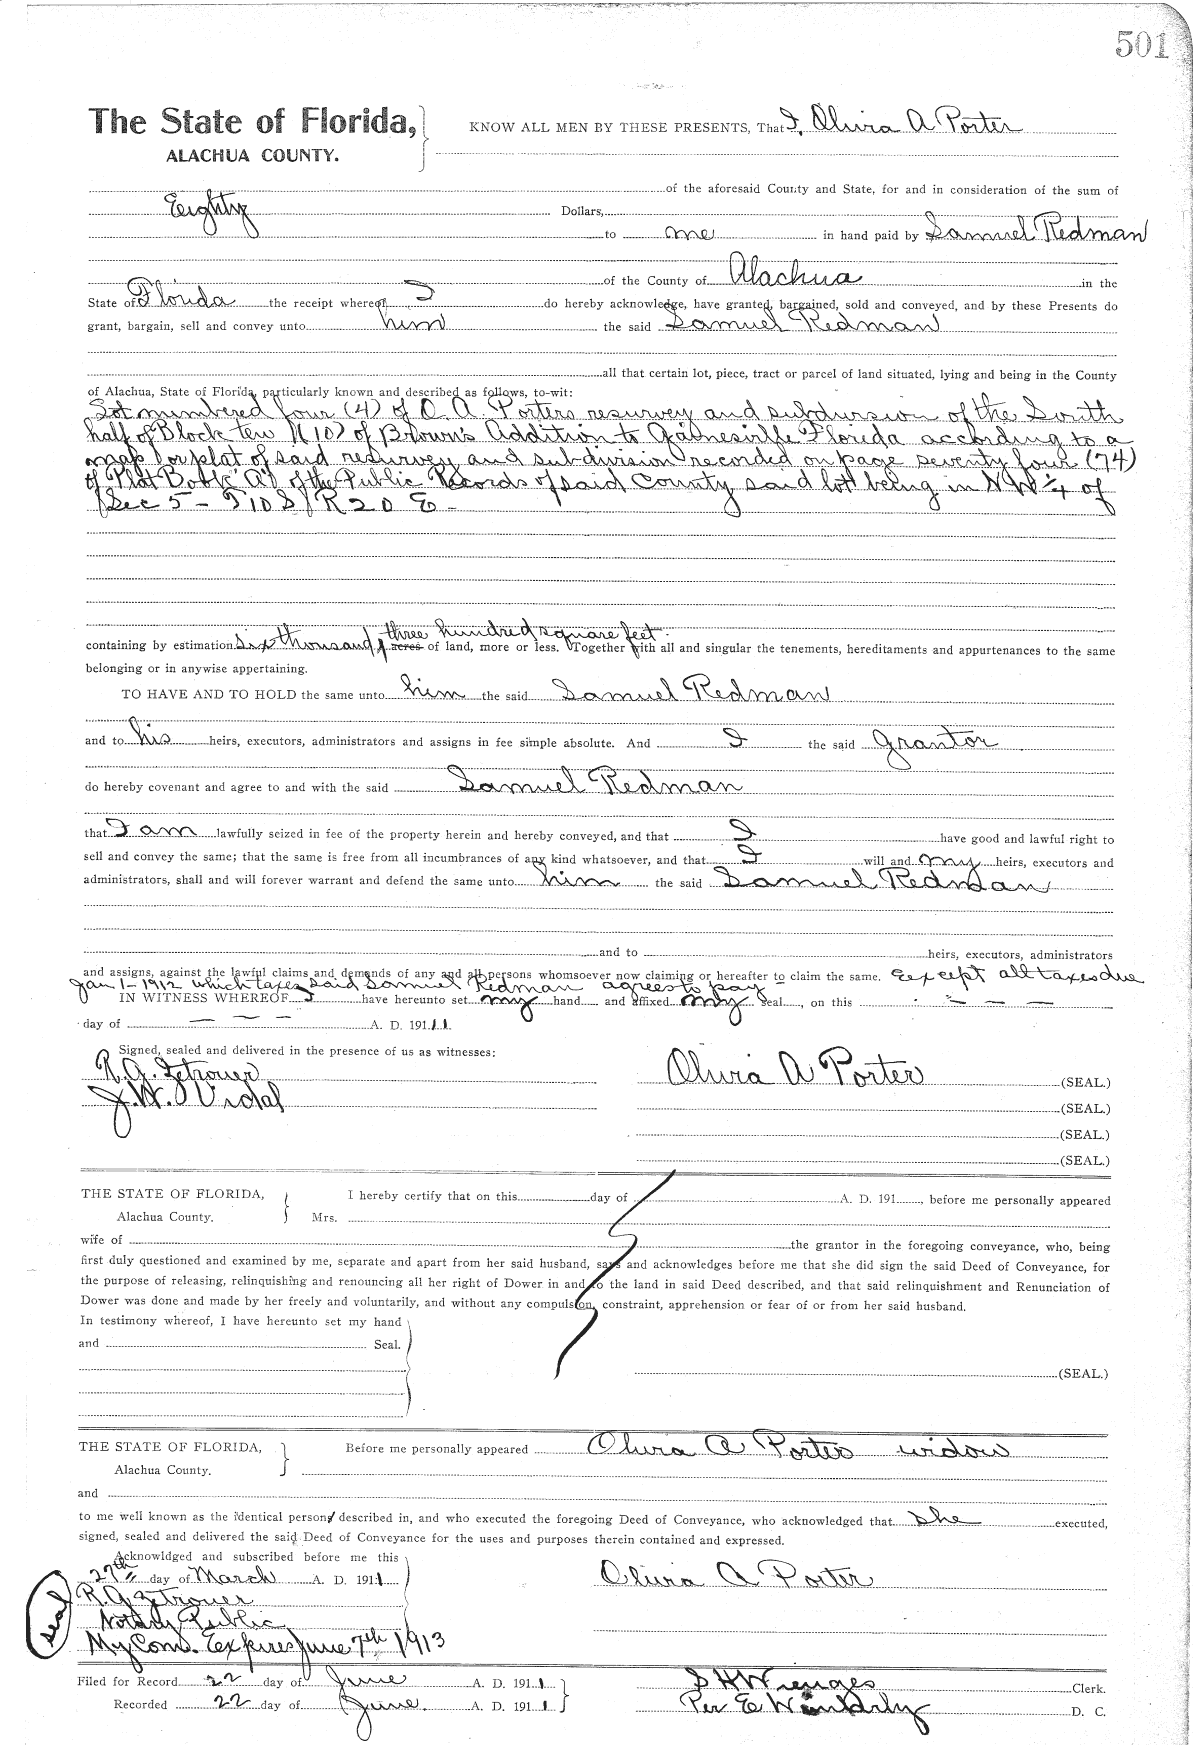 501
The State of Florida, KNOW ALL MEN BY THESE PRESENTS, That I, Olivia A Porter
ALACHUA COUNTY.
of the aforesaid County and State, for and in consideration of the sum of
Eighty Dollars,
to me in hand paid by Samuel Redman
of the County of Alachua in the
State of Florida the receipt whereof I do hereby acknowledge, have granted, bargained, sold and conveyed, and by these Presents do
grant, bargain, sell and convey unto him the said Samuel Redman
all that certain lot, piece, tract or parcel of land situated, lying and being in the County
of Alachua, State of Florida, particularly known and described as follows, to-wit:
Lot numbered four (4) of O. A. Porters resurvey and subdivision of the South
half of Block ten (10) of Brown's Addition to Gainesville Florida according to a
map or plat of said resurvey and subdivision recorded on page seventy four (74)
of Plat Book "A" of the Public Records of said County said lot being in NW 1/4 of
Sec 5 - T 10 S R 20 E -
containing by estimation six thousand three hundred square feet acres of land, more or less. Together with all and singular the tenements, hereditaments and appurtenances to the same
belonging or in anywise appertaining.
TO HAVE AND TO HOLD the same unto him the said Samuel Redman
and to his heirs, executors, administrators and assigns in fee simple absolute. And I the said grantor
do hereby covenant and agree to and with the said Samuel Redman
that I am lawfully seized in fee of the property herein and hereby conveyed, and that I have good and lawful right to
sell and convey the same; that the same is free from all incumbrances of any kind whatsoever, and that I will and my heirs, executors and
administrators, shall and will forever warrant and defend the same unto him the said Samuel Redman
and to heirs, executors, administrators
and assigns, against the lawful claims and demands of any and all persons whomsoever now claiming or hereafter to claim the same. Except all taxes due
Jan 1-1912 which taxes said Samuel Redman agrees to pay -
IN WITNESS WHEREOF I have hereunto set my hand and affixed my seal, on this - - -
day of - - - A. D. 1911.
Signed, sealed and delivered in the presence of us as witnesses:
R. G. Zetrouer Olivia A Porter (SEAL.)
J. W. Vidal (SEAL.)
(SEAL.)
(SEAL.)
THE STATE OF FLORIDA, I hereby certify that on this day of A. D. 191 , before me personally appeared
Alachua County. Mrs.
wife of the grantor in the foregoing conveyance, who, being
first duly questioned and examined by me, separate and apart from her said husband, says and acknowledges before me that she did sign the said Deed of Conveyance, for
the purpose of releasing, relinquishing and renouncing all her right of Dower in and to the land in said Deed described, and that said relinquishment and Renunciation of
Dower was done and made by her freely and voluntarily, and without any compulsion, constraint, apprehension or fear of or from her said husband.
In testimony whereof, I have hereunto set my hand
and Seal.
(SEAL.)
THE STATE OF FLORIDA, Before me personally appeared Olivia A Porter widow
Alachua County.
and
to me well known as the identical person described in, and who executed the foregoing Deed of Conveyance, who acknowledged that she executed,
signed, sealed and delivered the said Deed of Conveyance for the uses and purposes therein contained and expressed.
Acknowldged and subscribed before me this
27th day of March A. D. 1911 Olivia A Porter
R. G. Zetrouer
seal Notary Public
My Com. Expires June 7th 1913
Filed for Record 22 day of June A. D. 1911 S H Wienges Clerk.
Recorded 22 day of June. A. D. 1911. Per E D. C.